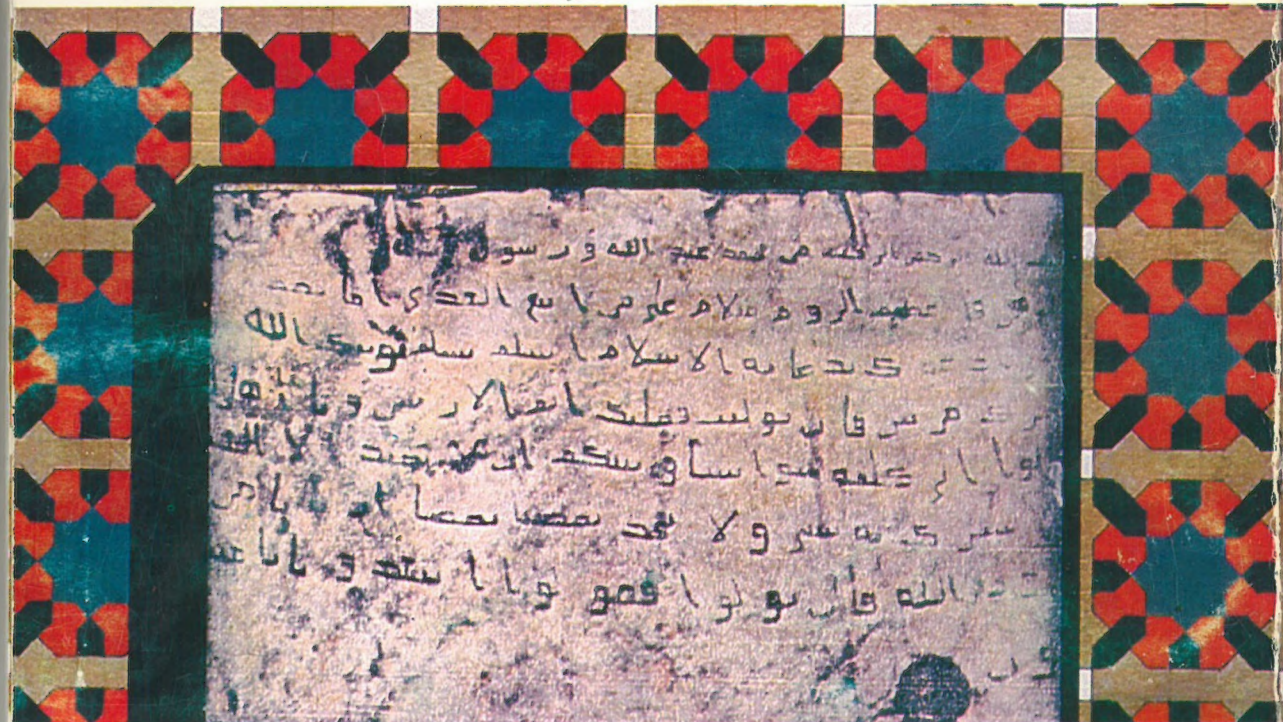 الله الرحمن الرحيم من محمد عبد الله و رسو
عظيم الروم سلام على من اتبع الهدى اما بعد
بدعاية الاسلام اسلم تسلم يؤتك الله
مرتين فان توليت فعليك اثم الاريسين و يا اهل
الى كلمة سوا بيننا و بينكم ان لا نعبد الا الله
نشرك به شيئا و لا يتخذ بعضنا بعضا اربابا من
دون الله فان تولوا فقولوا اشهدوا بانا